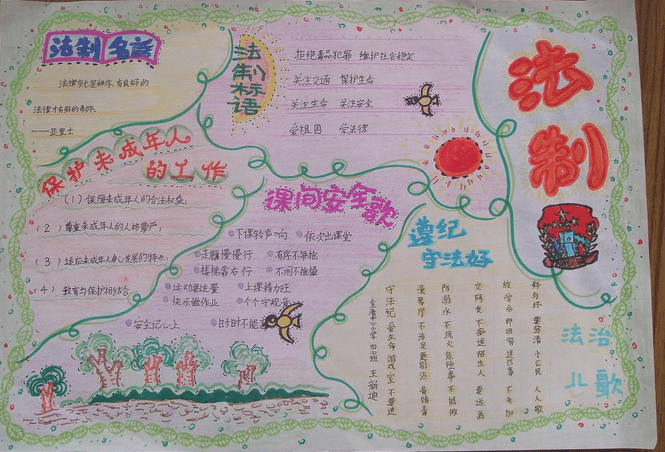 法制名言
法律就是秩序,有良好的
法律才有好的秩序。
——亚里士
法制标语
拒绝毒品犯罪 维护社会稳定
关注交通 保护生命
关注生命 关注安全
爱祖国 学法律
法制
保护未成年人
的工作
(1)保障未成年人的合法权益;
(2)尊重未成年人的人格尊严;
(3)适应未成年人身心发展的特点;
(4)教育与保护相结合
课间安全歌
下课铃声响 依次出课堂
走廊慢慢行 有序不争抢
楼梯靠右行 不闹不推搡
运动要适量 上课精力旺
快乐做作业 个个守规章
安全记心上 时时不能忘
遵纪
守法好
法治
儿歌
好与坏 要分清 小公民 人人敬
放学后 即回家 进传事 不参加
交网友 不痴迷 陌生人 要远离
防溺水 不玩火 危险事 不能做
录像厅 不涉足
守法纪 爱生命 游戏室 不要进
小学 四班 王